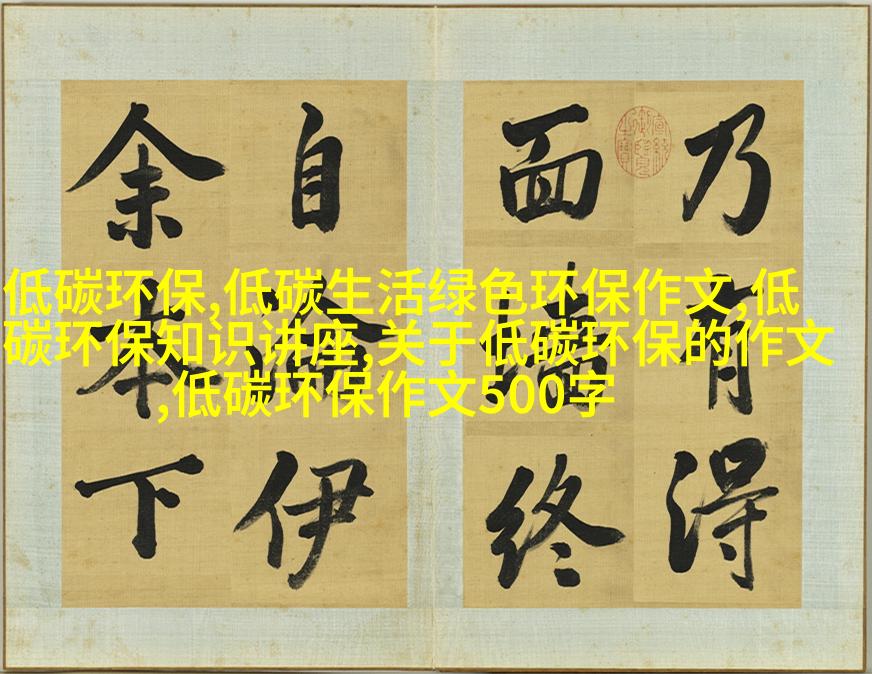 低碳环保,低碳生活绿色环保作文,低
碳环保知识讲座,关于低碳环保的作文
,低碳环保作文500字
乃有得
面终
自伊
余本下